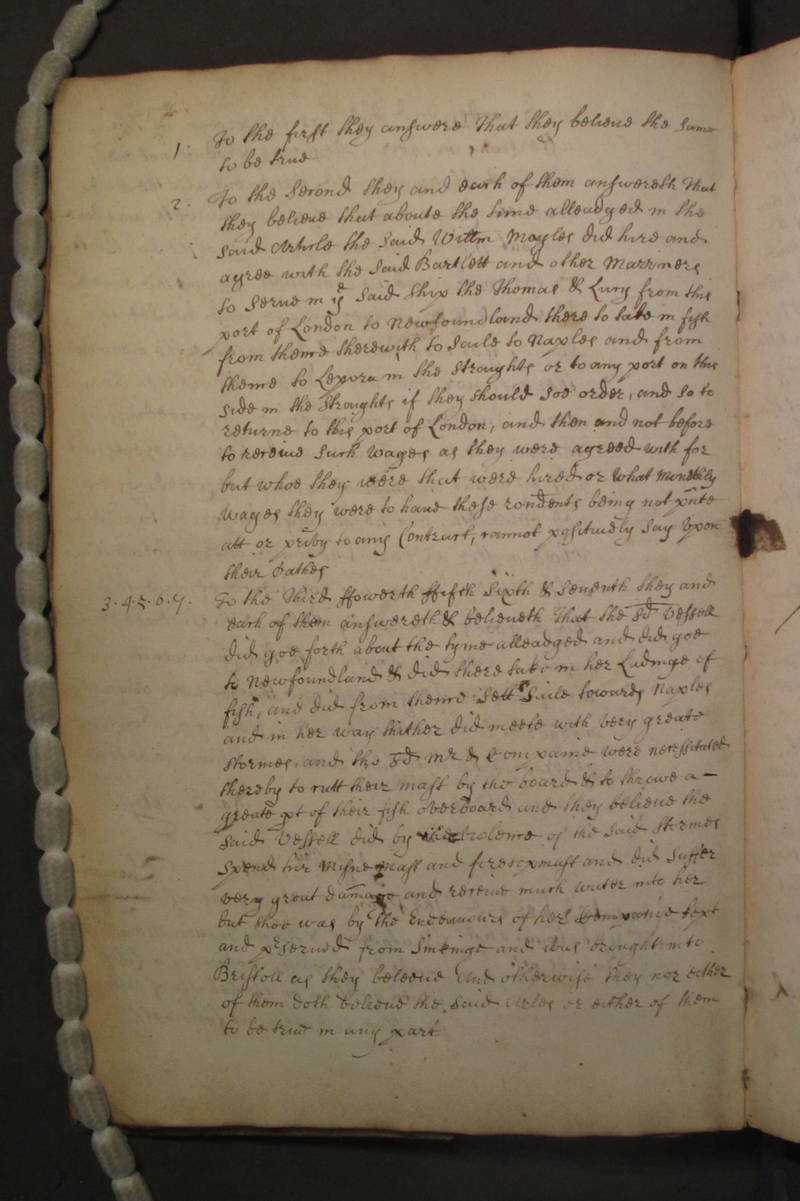 1. To the first they answere That they believe the same
to be true
2. To the Second they and each of them answereth That
they believe that aboute the time alleadged in the
said Article the said Willm Moyles did hire and
agree with the said Bartlett and other Marriners
to serve in ye said ship the Thomas & Lucy from this
port of London to Newfoundland there to take in fish
from thence therewith to Saile to Naples and from
thence to in the Straughts or to any port on this
side in the Straughts if they should soe order, and so to
returne to this port of London, and then and not before
to receive such wages as they were agreed with for
but whoe they were that were hired or what monethly
wages they were to have these rondents being not pnte
att or privy to any Contract, cannot positively say upon
their oathes
3. 4. 5. 6. 7. To the Third ffowerth ffifth Sixth & Seventh they and
each of them answereth & believeth That the sd vessell
did goe forth about the tyme alleadged and did goe
to Newfoundland & did there take in her Ladinge of
fish, and did from thence sett Saile towards Naples
and in her way thither did meete with very greate
stormes, and the sd Mr & Companie were necessitated
thereby to cutt their mast by the board & to throwe a
greate pt of their fish overboard and they believe the
said vessell did by the violence of the said stormes
spend her Misne mast and foretopmast and did suffer
very great damage and receive much water into her
but shee was by the Endeavours of her Companie kept
and pserved from sinkinge and was brought into
Bristoll as they beleeve And otherwise they nor either
of them doth believe the said Arles or either of them
to be true in any part